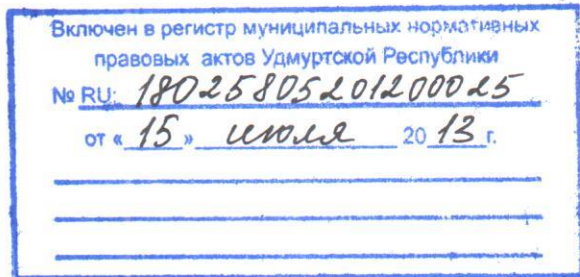 Включен в регистр муниципальных нормативных
правовых актов Удмуртской Республики
№ RU: 18025805201200025
от « 15 » июля 20 13 г.